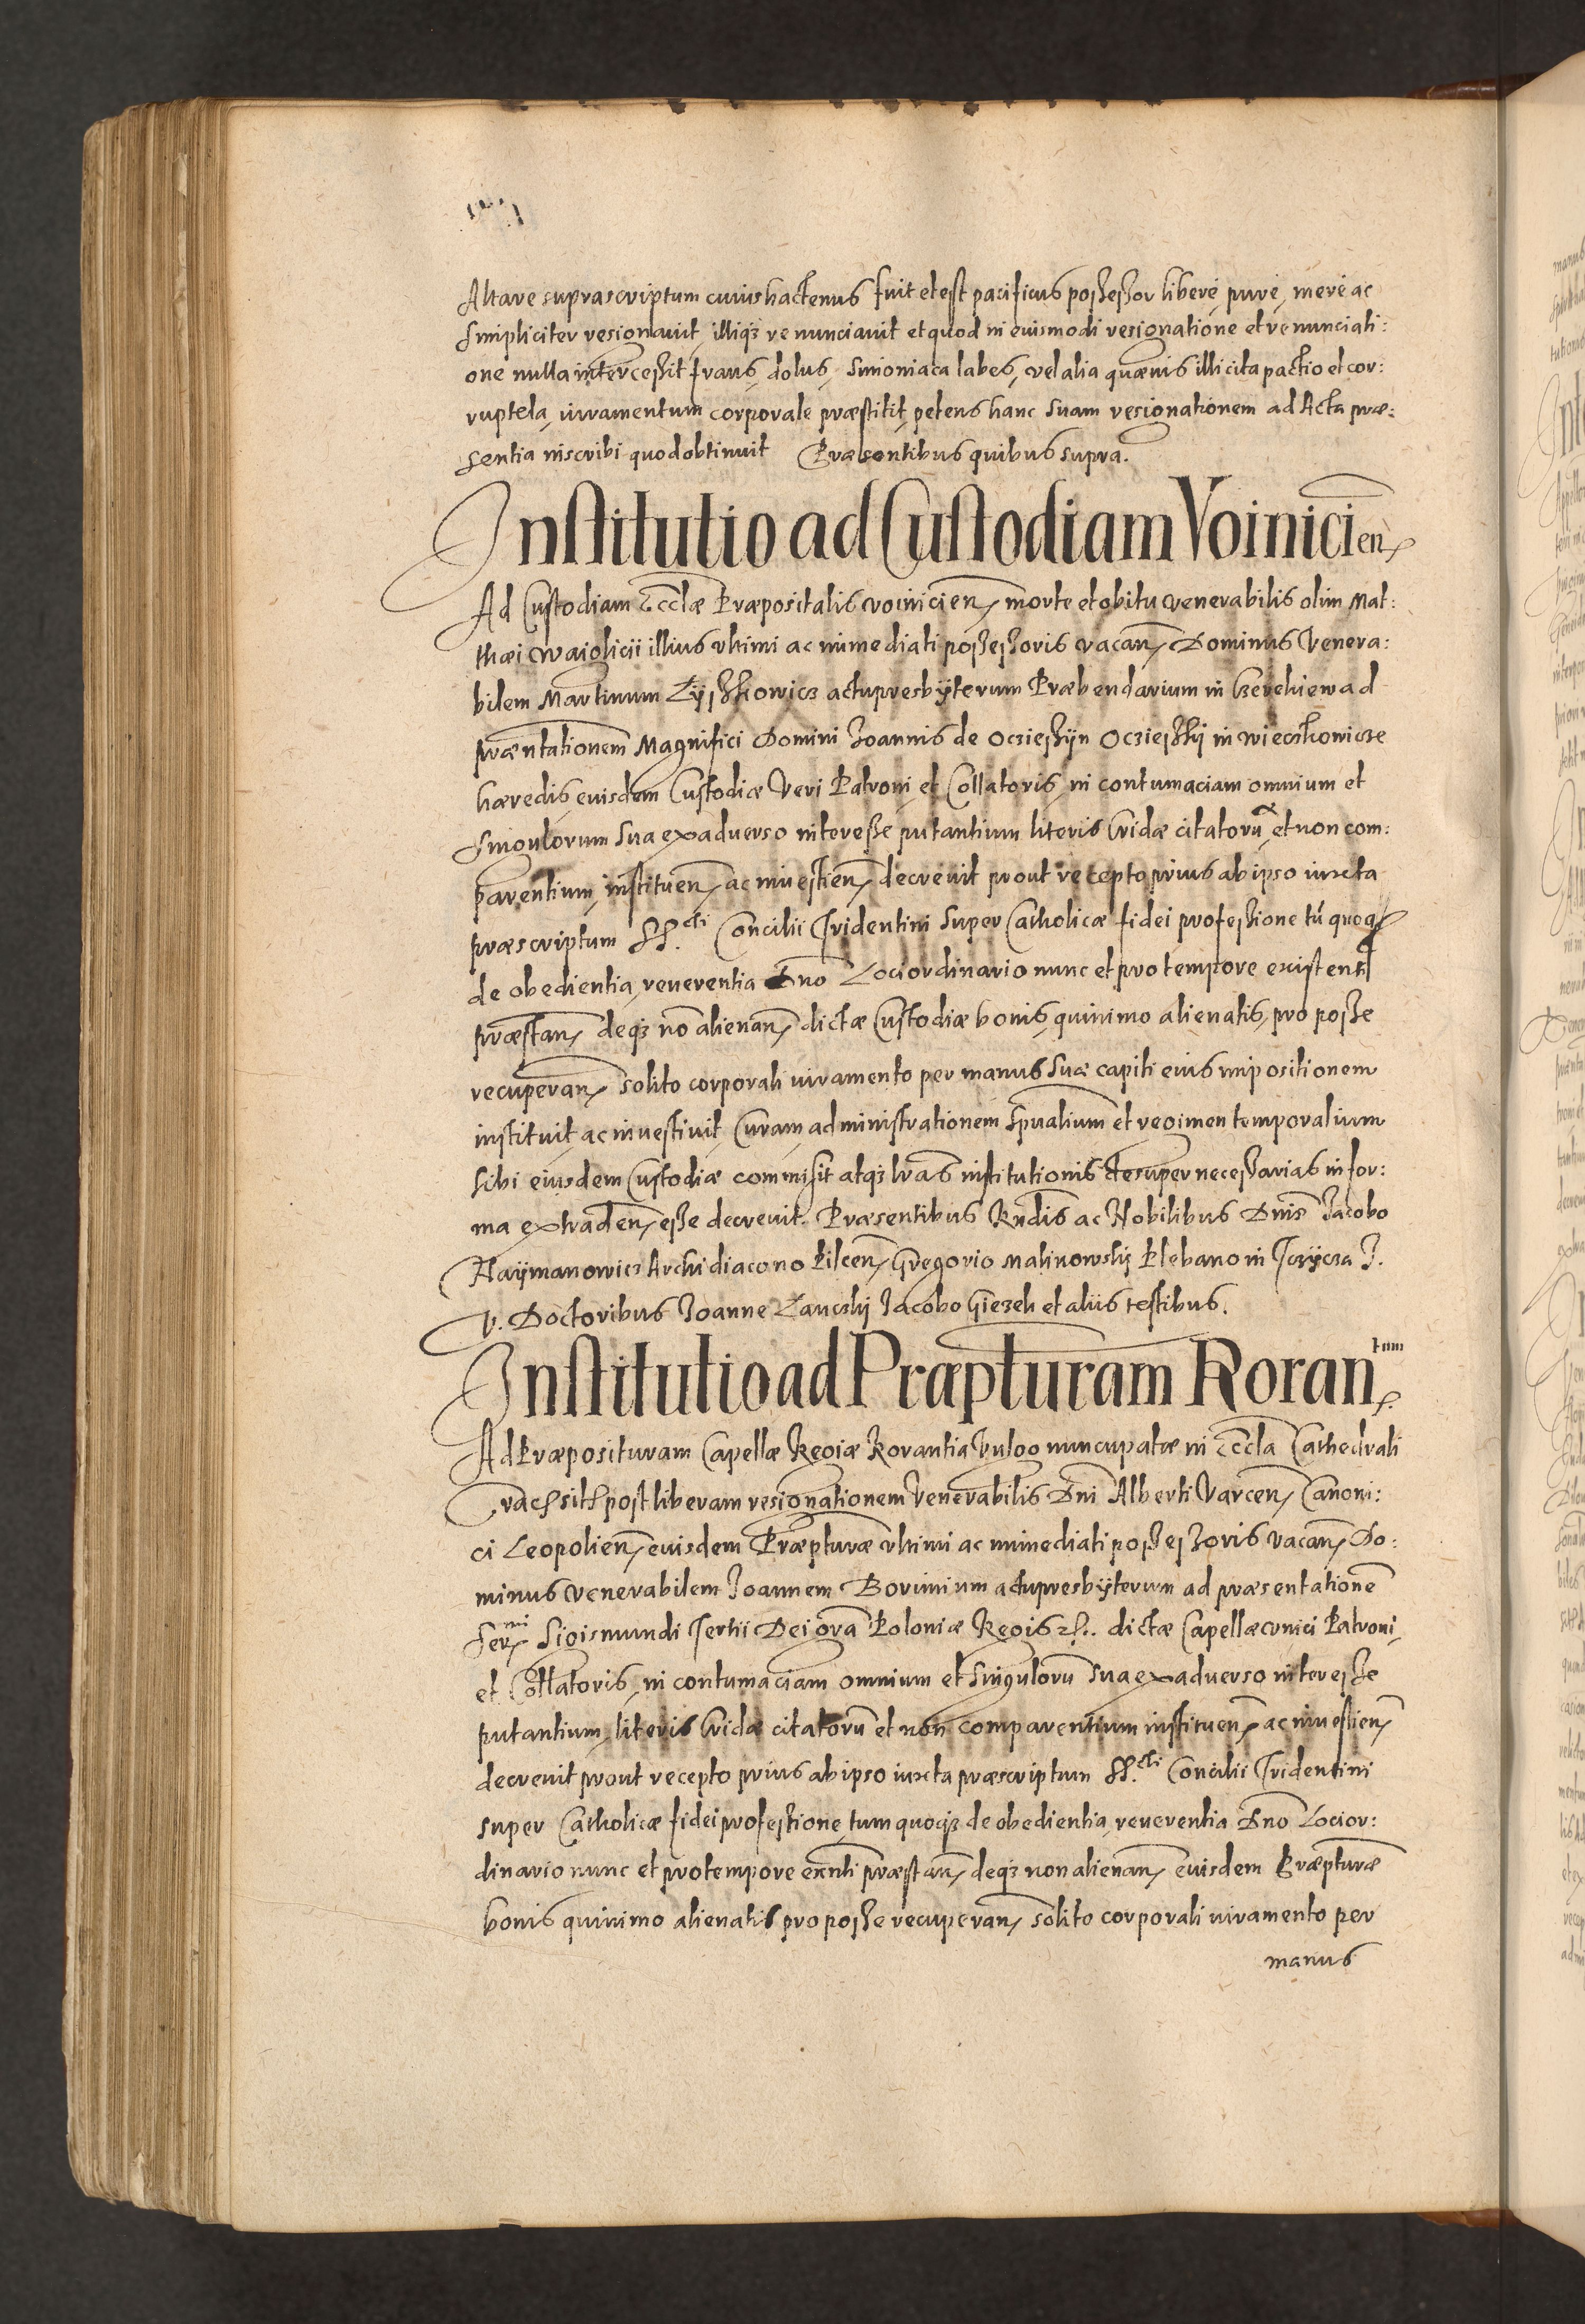 Altare suprascriptum cuius hactenus fuit et est pacificus possessor libere, pure, mere ac
simpliciter resignauit, illiqz renunciauit et quod in euismodi resignatione et renunciati:
one nulla intercessit fraus, dolus, simoniaca labes, vel alia quæuis illicita pactio et cor:
ruptela, iuramentum corporale præstitit, petens hanc suam resignationem ad Acta præ:
sentia inscribi quod obtinuit Præsentibus quibus supra.
Institutio ad Custodiam Voinicien
Ad Custodiam Ecclæ Præpositalis voinicien morte et obitu venerabilis olim Mat:
thæi Waiglicii illius vltimi ac immediati possessoris vacan Dominus Venera:
bilem Martinum Zÿszkowicz actupresbÿterum Præbendarium in ad
præntationem Magnifici Domini Joannis de Oczieszÿn Oczieskÿ in wieczkowicze
hæredis euisdem Custodiæ Veri Patroni et Collatoris, in contumaciam omnium et
singulorum sua ex aduerso interesse putantium literis Cridæ citatoru et non com:
parentium, instituen ac inuestien decreuit prout recepto prius ab ipso iuxta
præscriptum SS.cti Concilii Tridentini super Catholicæ fidei professione tu quoqz
de obedientia, reuerentia Dno Loci ordinario nunc et pro tempore existenti
præstan deqz no alienan dictæ Custodiæ bonis, quinimo alienatis, pro posse
recuperan solito corporali iuramento per manus suæ capiti eius impositionem
instituit ac inuestiuit Curam administrationem spualium et regimen temporalium
sibi eiusdem Custodiæ commisit atqz lras institutionis desuper necessarias in for:
ma extraden esse decreuit. Præsentibus Rndis ac Nobilibus Dnis Jacobo
Naÿmanowicz Archidiacono Pilcen Gregorio Malinowskÿ Plebano in Iczÿcza J.
V. Doctoribus Joanne Lanczkÿ Jacobo Giezek et aliis testibus.
Institutio ad Præpturam Roran tium
Ad Præposituram Capellæ Regiæ Rorantia Vulgo nuncupatæ in Eccla Cathedrali
Crac sit post liberam resignationem Venerabilis Dni Alberti Varcen Canoni:
ci Leopolien, euisdem Præpturæ vltimi ac immediati possessoris vacan Do:
minus venerabilem Joannem Borimium actupresbÿterum ad præsentatione
Ser mi Sigismundi Tertii Dei gra Poloniæ Regis etc. dictæ Capellæ vnici Patroni
et Collatoris, in contumaciam omnium et singuloru sua ex aduerso interesse
putantium, literis Cridæ citatoru et non comparentium instituen ac inuestien
decreuit prout recepto prius ab ipso iuxta præscriptum SS.cti Concilii Tridentini
super Catholicæ fidei professione, tum quoqz de obedientia, reuerentia Dno Loci or:
dinario nunc et pro tempore exnti præstan deqz non alienan euisdem Præpturæ
bonis quinimo alienatis pro posse recuperan solito corporali iuramento per
manus